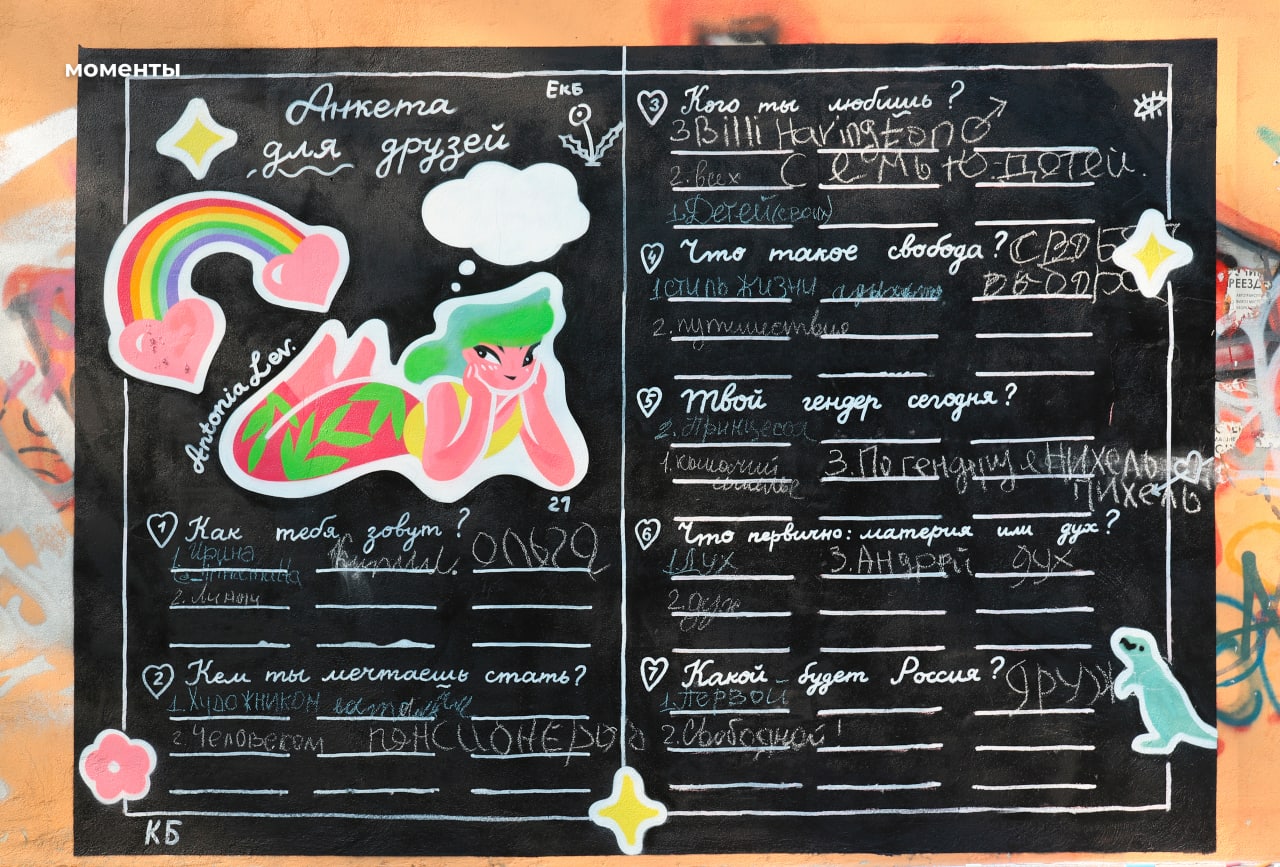 моменты
Анкета
для друзей
Екб
Antonia Lev.
21
1 Как тебя зовут?
1. Ирина
Кирилл. Ольга
2. Лиан
2 Кем ты мечтаешь стать?
1. Художником
2. Человеком пенсионером
КБ
3 Кого ты любишь?
3 Billi Harington
2. всех Семью. детей.
1. Детей (своих)
4 Что такое свобода?
1 стиль жизни
2. путишествия
5 Твой гендер сегодня?
2. Принцесса
1. кошачий
3. По гендеру я Нихель
Пихель
6 Что первично: материя или дух?
1. Дух 3. Андрей дух
2. дух
7 Какой будет Россия?
1. Первой
2. Свободной!